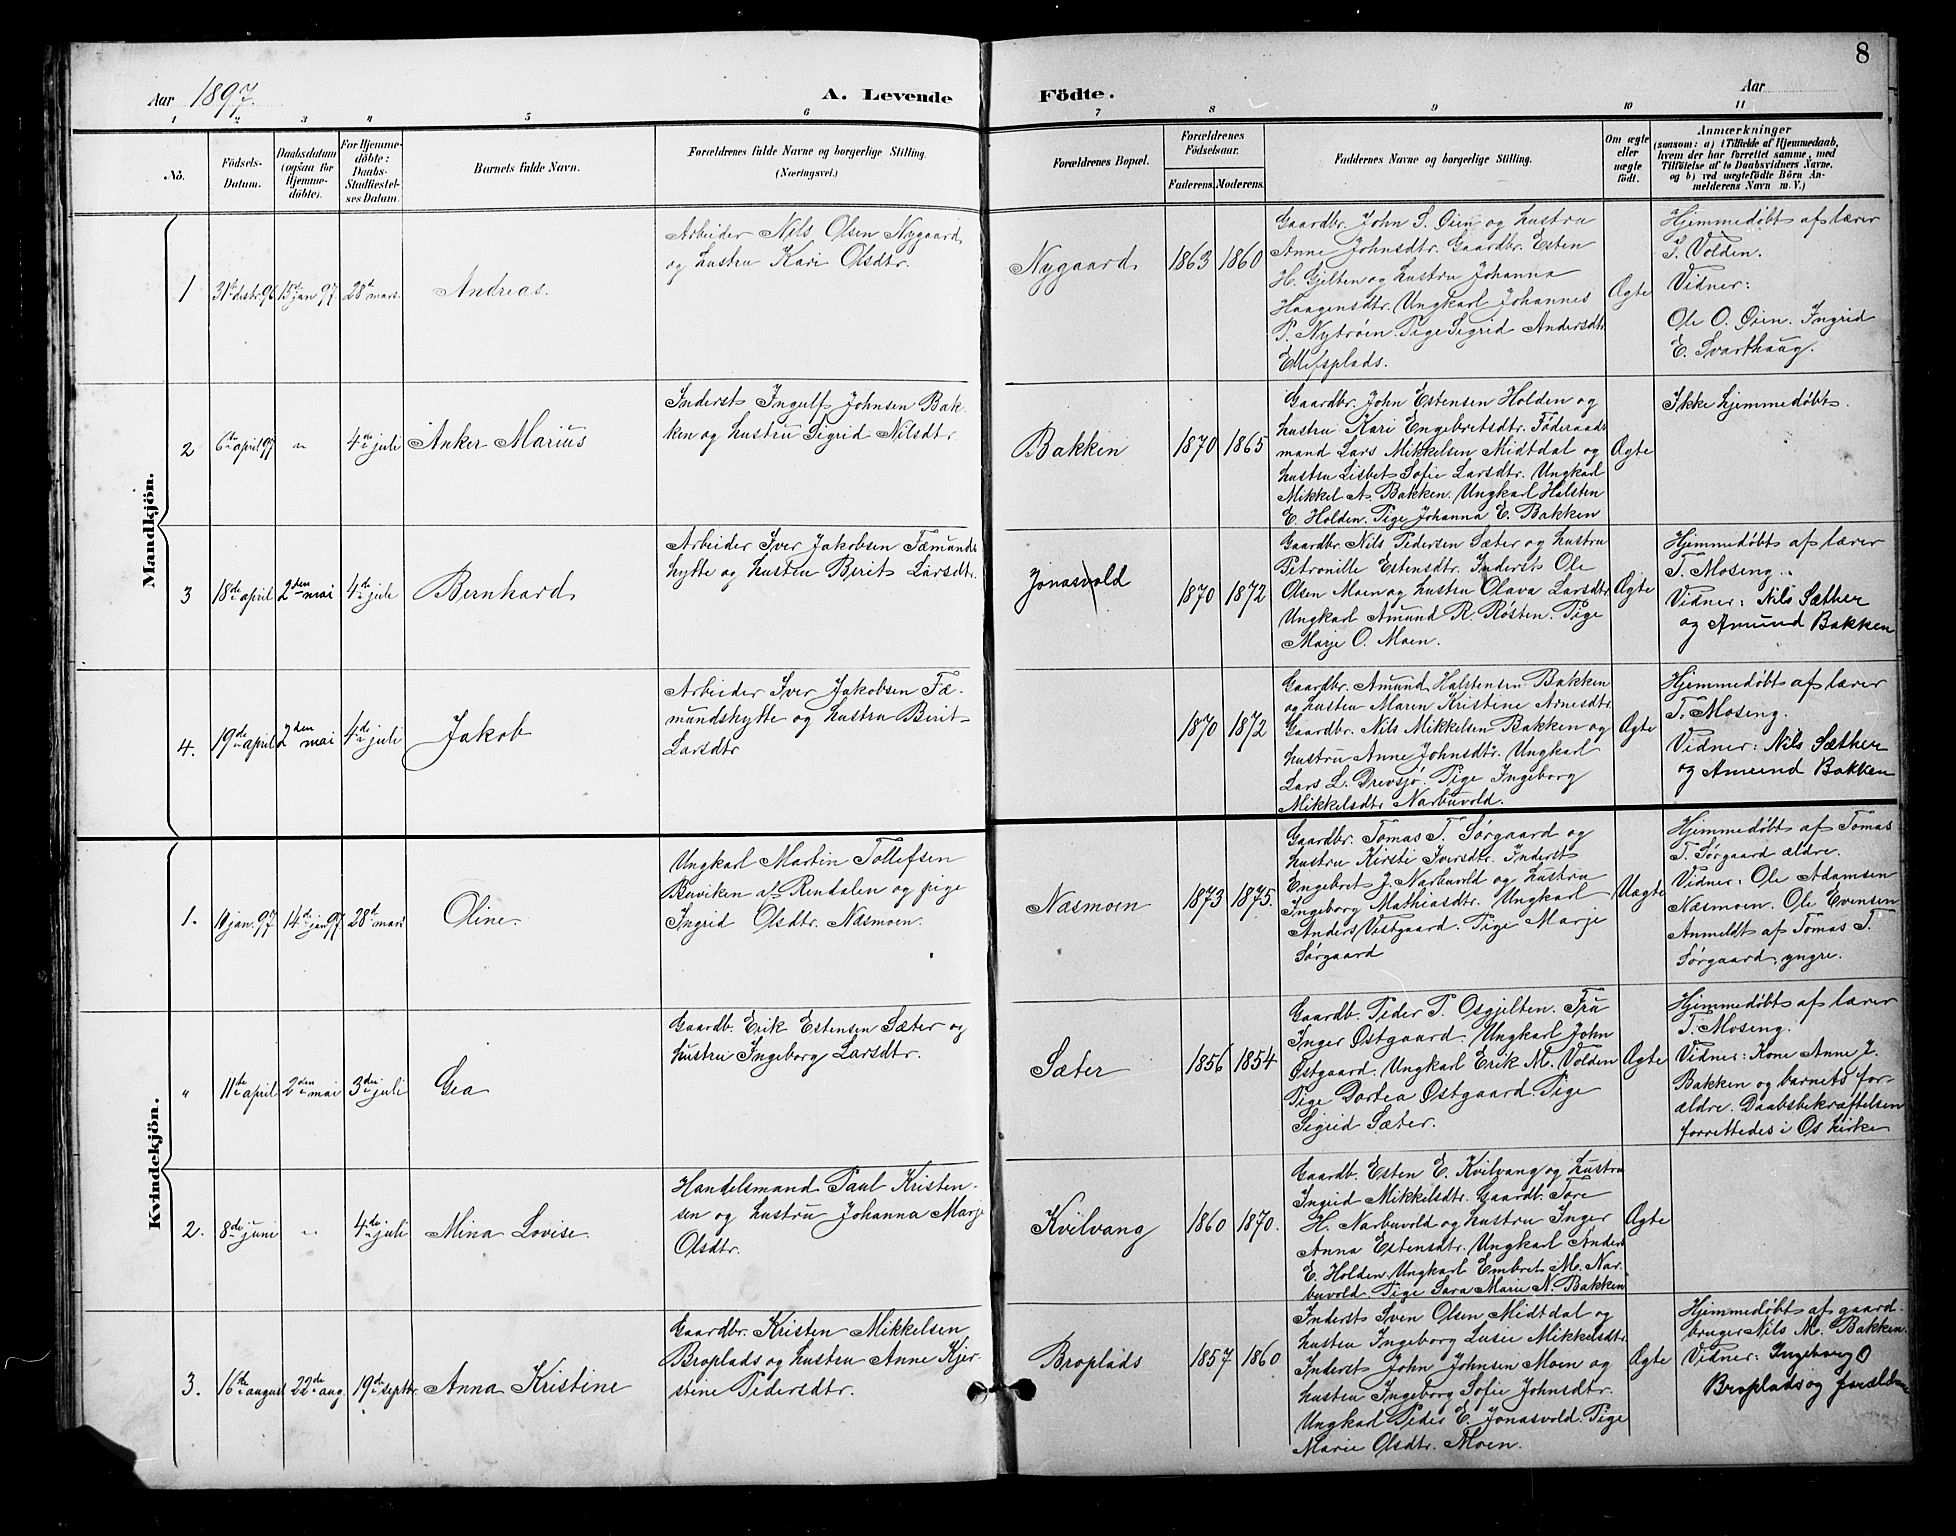 8
Aar 1897.
A. Levende
Födte.
Aar
1
2
3
4
5
6
7
8
9
10
11
No.
Födsels-
Datum.
Daabsdatum
(ogsaa for
Hjemme-
döbte).
For Hjemme-
döbte:
Daabs-
Stadfæstel-
ses Datum.
Barnets fulde Navn.
Forældrenes fulde Navne og borgerlige Stilling.
(Næringsvei.)
Forældrenes Bopæl.
Forældrenes
Födselsaar.
Faderens.
Moderens.
Faddernes Navne og borgerlige Stilling.
Om ægte
eller
uægte
födt.
Anmærkninger
(saasom: a) i Tilfælde af Hjemmedaab,
hvem der har forrettet samme, med
Tilföielse af to Daabsvidners Navne,
og b) ved uægtefödte Börn An-
melderens Navn m. V.)
Mandkjön.
1
31te debr. 96
15de jan 97
28de mars.
Andreas.
Arbeider Nils Olsen Nygaard
og hustru Kari Olsdtr.
Nygaard
1863
1860
Gaardbr. John S. Øien og hustru
Anne Johnsdtr. Gaardbr. Esten
H. Gjelten og hustru Johanna
Haagensdtr. Ungkarl Johannes
P. Nytrøen. Pige Sigrid Andersdtr.
Ellefsplads.
Ægte
Hjemmedøbt af lærer
T. Volden.
Vidner:
Ole O. Øien. Ingrid
E. Svarthaug.
2
6te april 97
"
4de juli
Anker Marius
Inderst Ingulf Johnsen Bak-
ken og hustru Sigrid Nilsdtr.
Bakken
1870
1865
Gaardbr. John Estensen Holden og
hustru Kari Engebretsdtr. Føderaads
mand Lars Mikkelsen Midtdal og
hustru Lisbet Sofie Larsdtr. Ungkarl
Mikkel A. Bakken. Ungkarl Halsten
E. Holden. Pige Johanna E. Bakken
Ægte
Ikke hjemmedøbt.
3
18de april
2den mai
4de juli
Bernhard
Arbeider Iver Jakobsen Fæmunds
hytte og hustru Berit Larsdtr.
Jonasvold
1870
1872
Gaardbr. Nils Pedersen Sæter og hustru
Petronille Estensdtr. Inderst Ole
Olsen Moen og hustru Olava Larsdtr.
Ungkarl Amund R. Røsten. Pige
Marje O. Moen.
Ægte
Hjemmedøbt af lærer
T. Moseng.
Vidner: Nils Sæther
og Amund Bakken
4.
19de april
2den mai
4de juli
Jakob
Arbeider Iver Jakobsen Fæ-
mundshytte og hustru Berit
Larsdtr
1870
1872
Gaardbr. Amund Halstensen Bakken
og hustru Maren Kristine Arnesdtr.
Gaardbr. Nils Mikkelsen Bakken og
hustru Anne Johnsdtr. Ungkarl
Lars L. Drevsjø. Pige Ingeborg
Mikkelsdtr. Narbuvold.
Ægte
Hjemmedøbt af lærer
T. Moseng.
Vidner: Nils Sæther
og Amund Bakken
Kvindekjön.
1.
jan. 97
14de jan 97.
28de mars
Oline.
Ungkarl Martin Tollefsen
Buviken af Rendalen og pige
Ingrid Olsdtr. Næsmoen.
Næsmoen
1873
1875.
Gaardbr. Tomas T. Sørgaard og
hustru Kirsti Iversdtr. Inderst
Engebret J. Narbuvold og hustru
Ingeborg Mathiasdtr. Ungkarl
Anders Vestgaard. Pige Marje
Sørgaard
Uægte
Hjemmedøbt af Tomas
T. Sørgaard ældre.
Vidner: Ole Adamsen
Næsmoen. Ole Evensen
Anmeldt af Tomas T.
Sørgaard, yngre.
"
11te april
2den mai
3die juli
Gea
Gaardb. Erik Estensen Sæter og
hustru Ingeborg Larsdtr.
Sæter
1856
1854
Gaardb. Peder P. Osgjelten. Fru
Inger Østgaard. Ungkarl John
Østgaard. Ungkarl Erik M. Volden
Pige Dortea Østgaard. Pige
Sigrid Sæter.
Ægte
Hjemmedøbt af lærer
T. Moseng.
Vidner: Kone Anne J.
Bakken og barnets for-
ældre. Daabsbekræftelsen
forrettedes i Os kirke
2.
8de juni
"
4de juli
Mina Lovise.
Handelsmand Paul Kristen-
sen og hustru Johanna Marje
Olsdtr.
Kvilvang
1860
1870.
Gaardb. Esten E. Kvilvang og hustru
Ingrid Mikkelsdtr. Gaardb. Tore
H. Narbuvold og hustru Inger
Anna Estensdtr. Ungkarl Anders
E. Holden. Ungkarl Embret M. Nar-
buvold. Pige Sara Marie N. Bakken
Ægte
3.
16de august
22de aug.
19de septbr.
Anna Kristine
Gaardbr. Kristen Mikkelsen
Broplads og hustru Anne Kjer-
stine Pedersdtr.
Broplads
1857
1860
Inderst Sven Olsen Midtdal og
hustru Ingeborg Lusie Mikkelsdtr.
Inderst John Johnsen Moen og
hustru Ingeborg Sofie Johnsdtr.
Ungkarl Peder E. Jonasvold. Pige
Marie Olsdtr. Moen.
Ægte
Hjemmedøbt af gaard-
bruger Nils M. Bakken.
Vidner: Ingeborg O
Broplads og forældrene